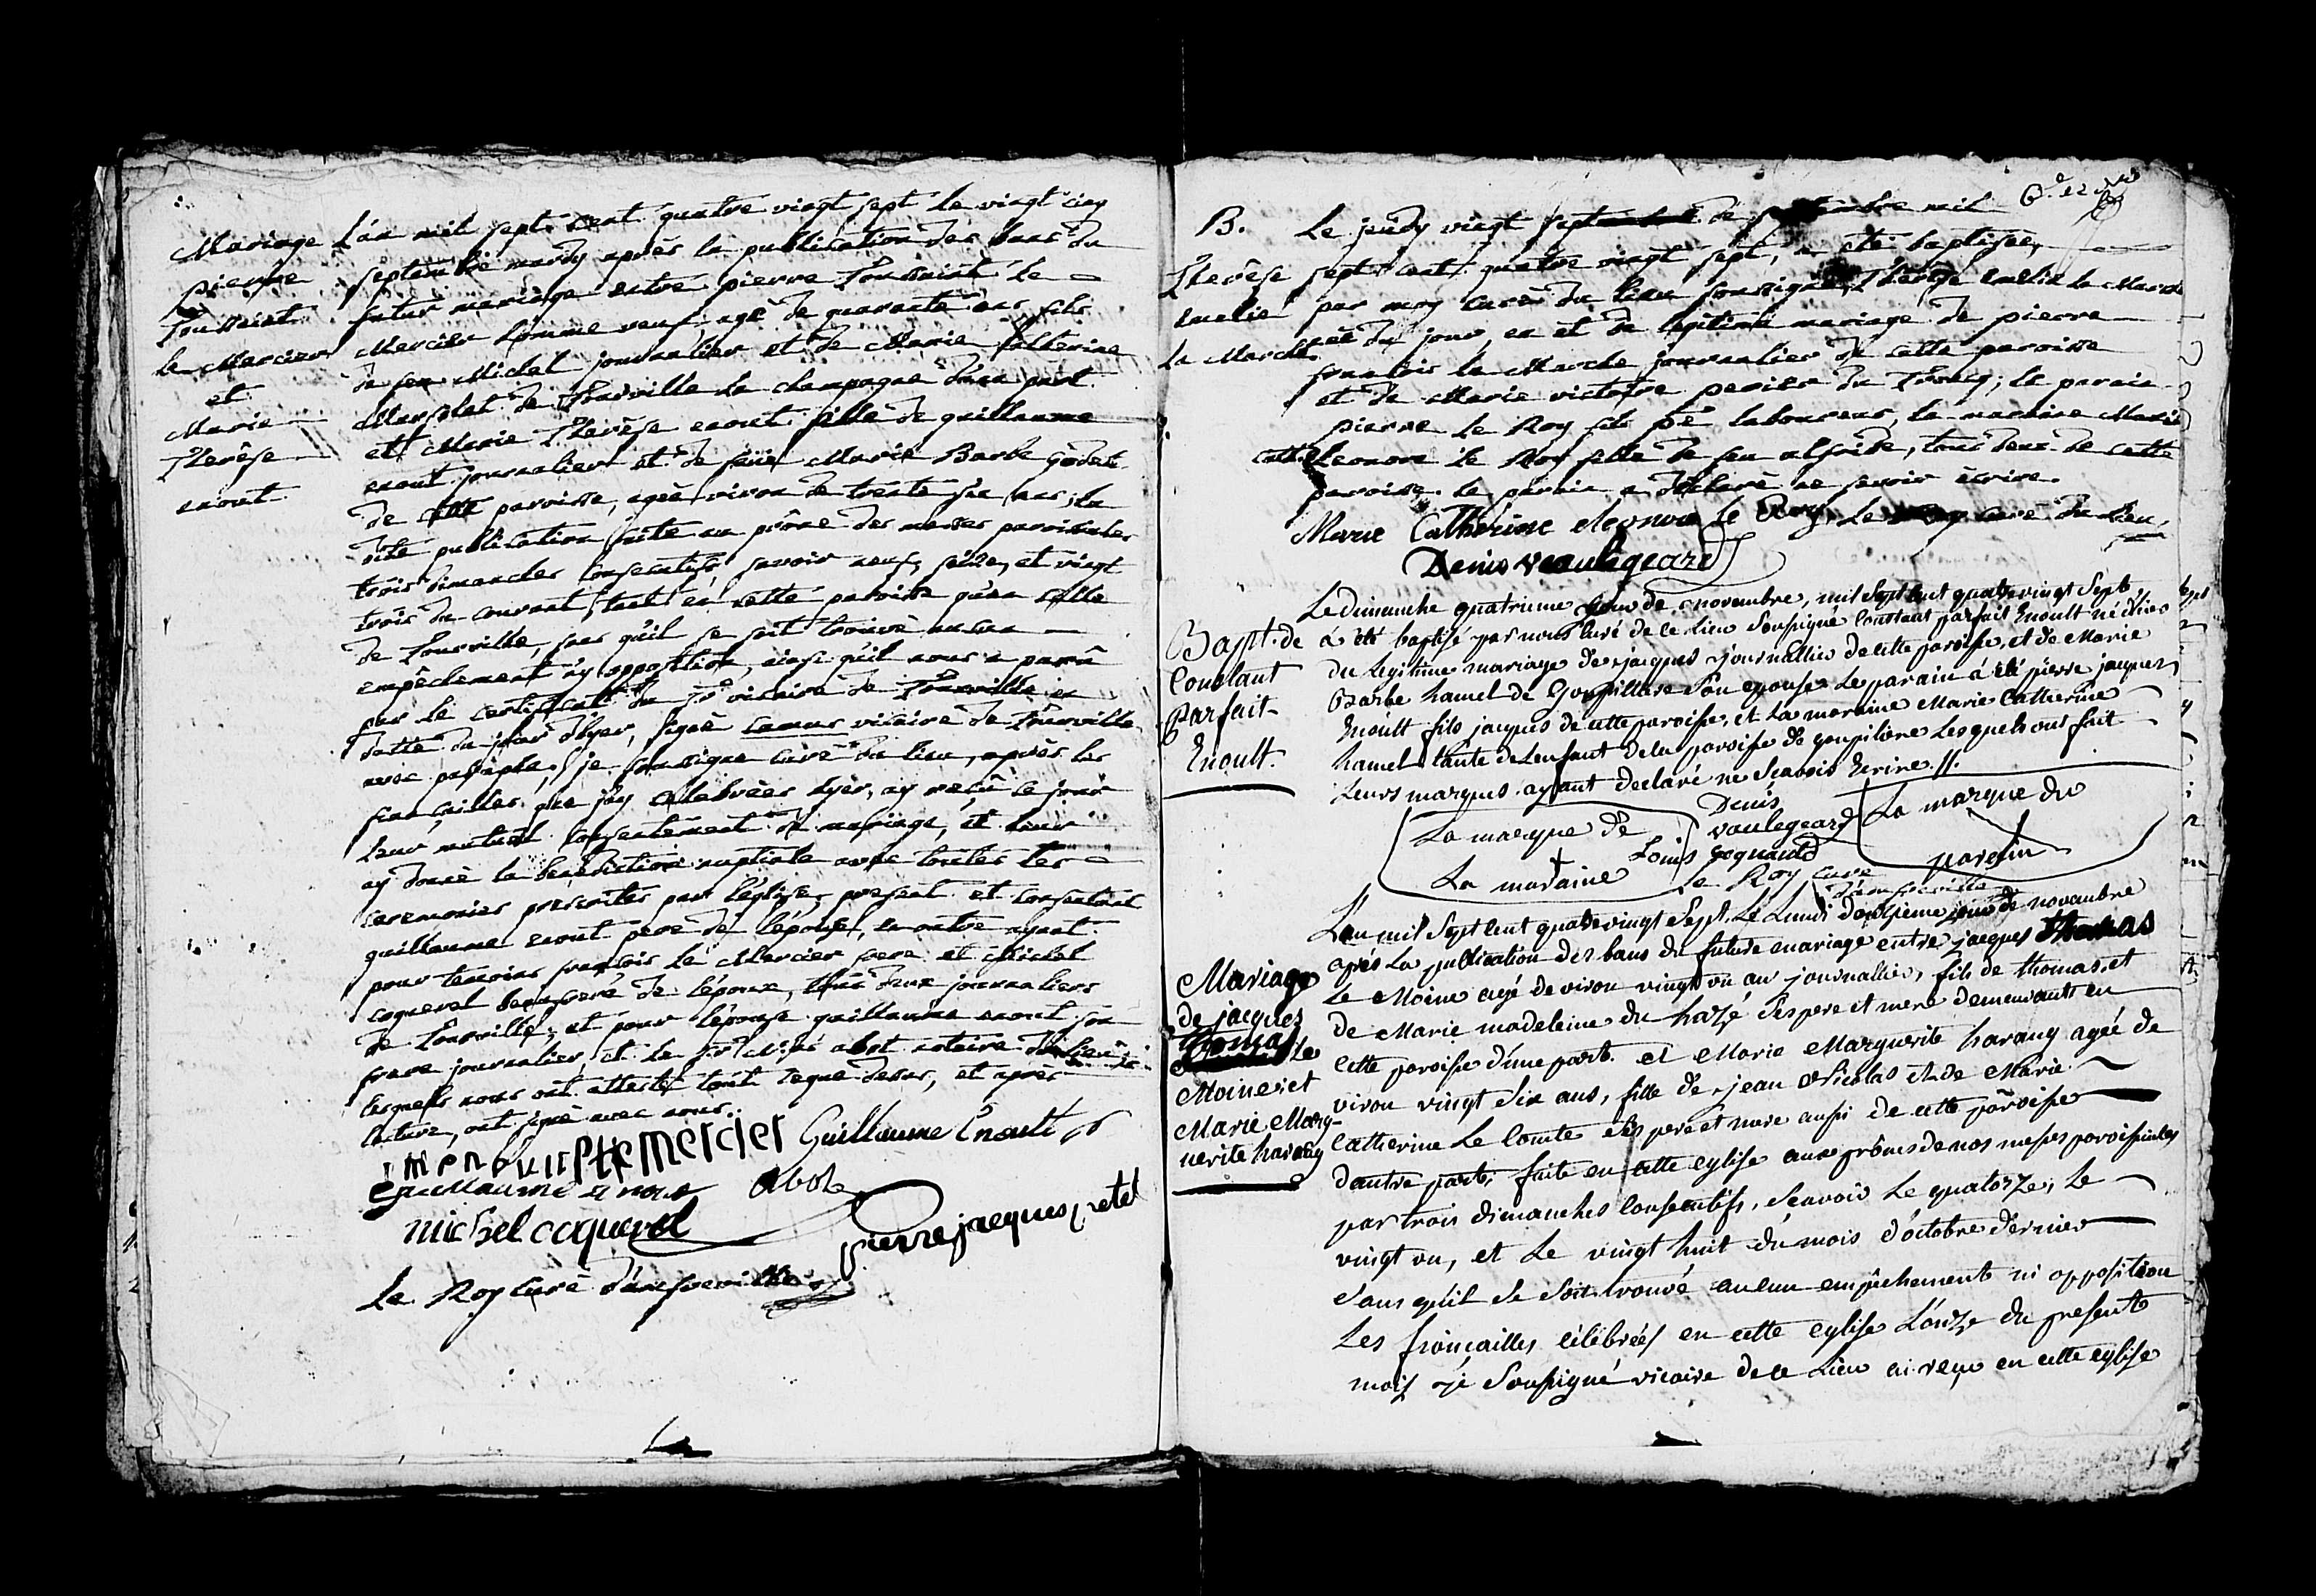 Mariage
pierre
Toussaint
le Mercier
et
Marie
Therêse
enout
L'an mil sept cent quatre vingt sept le vingt cinq
septembre mardy après la publication des bans du
futur mariage entre pierre Toussaint le
Mercier homme veuf, agé de quarante ans, fils
de feu Michel journalier et de Marie Catherine
de Tourville la champagne d'une part
et Marie Therèse enout fille de guillaume
enout journalier et de feüe Marie Barbe
de cette paroisse, agée viron de trente six ans, la
dite publication faite au prône des messes paroissiales
trois dimanches consecutifs savoir neuf, seize, et vingt
trois du courant, tant en cette paroisse qu'en celle
de Tourville, sans qu'il se soit trouvé aucun
empêchement n'y opposition, ainsi qu'il nous a parû
par le certificat du Sr vicaire de Tourville en
datte du jour d'hyer, signé camus vicaire de Tourville
avec paraphe, je soussigné curé du lieu, après les
fiançailles que j'ay celebrées hyer, ay reçû ce jour
leur mutuel consentement de mariage, et leur
ay donné la bénédiction nuptiale avec toutes les
ceremonies prescrites par l'église, present et consentant
guillaume enout pere de l'épouse, en outre ayant
pour temoins françois le Mercier frere et Michel
coquerel beaufrere de l'époux, tous deux journaliers
de Tourville, et pour l'épouse guillaume enout son
frere journalier, et le Sr abot notaire
lesquels nous ont attesté tout ce que dessus, et après
lecture, ont signé avec nous.
mercier Guillaume Enoult
guillaume enout abot
michel coquerel pierre jacques
Le Roy curé d'amfreville
B.
Therêse
emelie
la Marche
Le jeudy vingt sept de septembre mil
sept cent quatre vingt sept, a été baptisée,
par moy curé du lieu soussigné, Therèse emelie la Marche
née du jour, en et de legitime mariage de pierre
françois la Marche journalier de cette paroisse
et de Marie victoire perier du Troncq; le parain
pierre le Roy fils laboureur, la maraine Marie
cath. Leonore le Roy fille de feu, tous deux de cette
paroisse. le parain a déclaré ne savoir écrire.
Marie Catherine eleonore le Roy, le Roy curé du lieu,
Denis vaulegeard
Bapt. de
Constant
Parfait
Enoult.
Le Dimanche quatrieme jour de novembre, mil Sept cent quatre vingt Sept,
à été baptisé par nous Curé de ce Lieu Soussigné Constant parfait Enoult né d'hier
du Legitime mariage de jacques journallier de cette paroisse, et de Marie
Barbe hamel de Goupillere Son epouse Le parain à été pierre jacques
Enoult fils jacques de cette paroisse, et La maraine Marie Catherine
hamel tante de Lenfant de la paroisse de goupiliere Lesquels ont fait
Leurs marques ayant declaré ne Scavoir Ecrire //.
La marque de
La maraine
Denis
vaulegeard
Louis
Le Roy Curé
d'amfreville
La marque du
parain
Mariage
de jacques
Le
Moine et
Marie Marg-
uerite harang
L'an mil Sept cent quatre vingt Sept, Le Lundi douzieme jour de novembre
après La publication des bans du future mariage entre jacques Thomas
Le Moine agé de viron vingt un an journallier, fils de thomas, et
de Marie madeleine du hazé Ses pere et mere demeurants en
cette paroisse d'une part. et Marie Marguerite harang agée de
viron vingt Six ans, fille de jean Nicolas et de Marie
Catherine Le Comte Ses pere et mere aussi de cette paroisse
dautre part, faite en cette eglise aux prônes de nos messes paroissiales
par trois dimanches Consecutifs, Scavoir Le quatorze, Le
vingt un, et Le vingt huit du mois d'octobre dernier
Sans qu'il Se Soit trouvé aucun empêchement ni opposition
Les fiançailles célébrées en cette eglise L'onze du present
mois je Soussigné vicaire de ce Lieu ai reçu en cette eglise